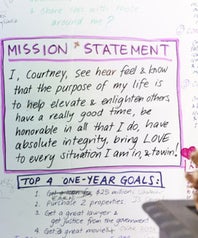 & share both with those
around me?
MISSION STATEMENT
I, Courtney, see hear feel & know
that the purpose of my life is
to help elevate & enlighten others,
have a really good time, be
honorable in all that I do, have
absolute integrity, bring LOVE
to every situation I am in & to win!
TOP 4 ONE-YEAR GOALS:
1. $25 million
2. Purchase 2 properties
3. Get a great lawyer &
get justice from the government
4. Get a great